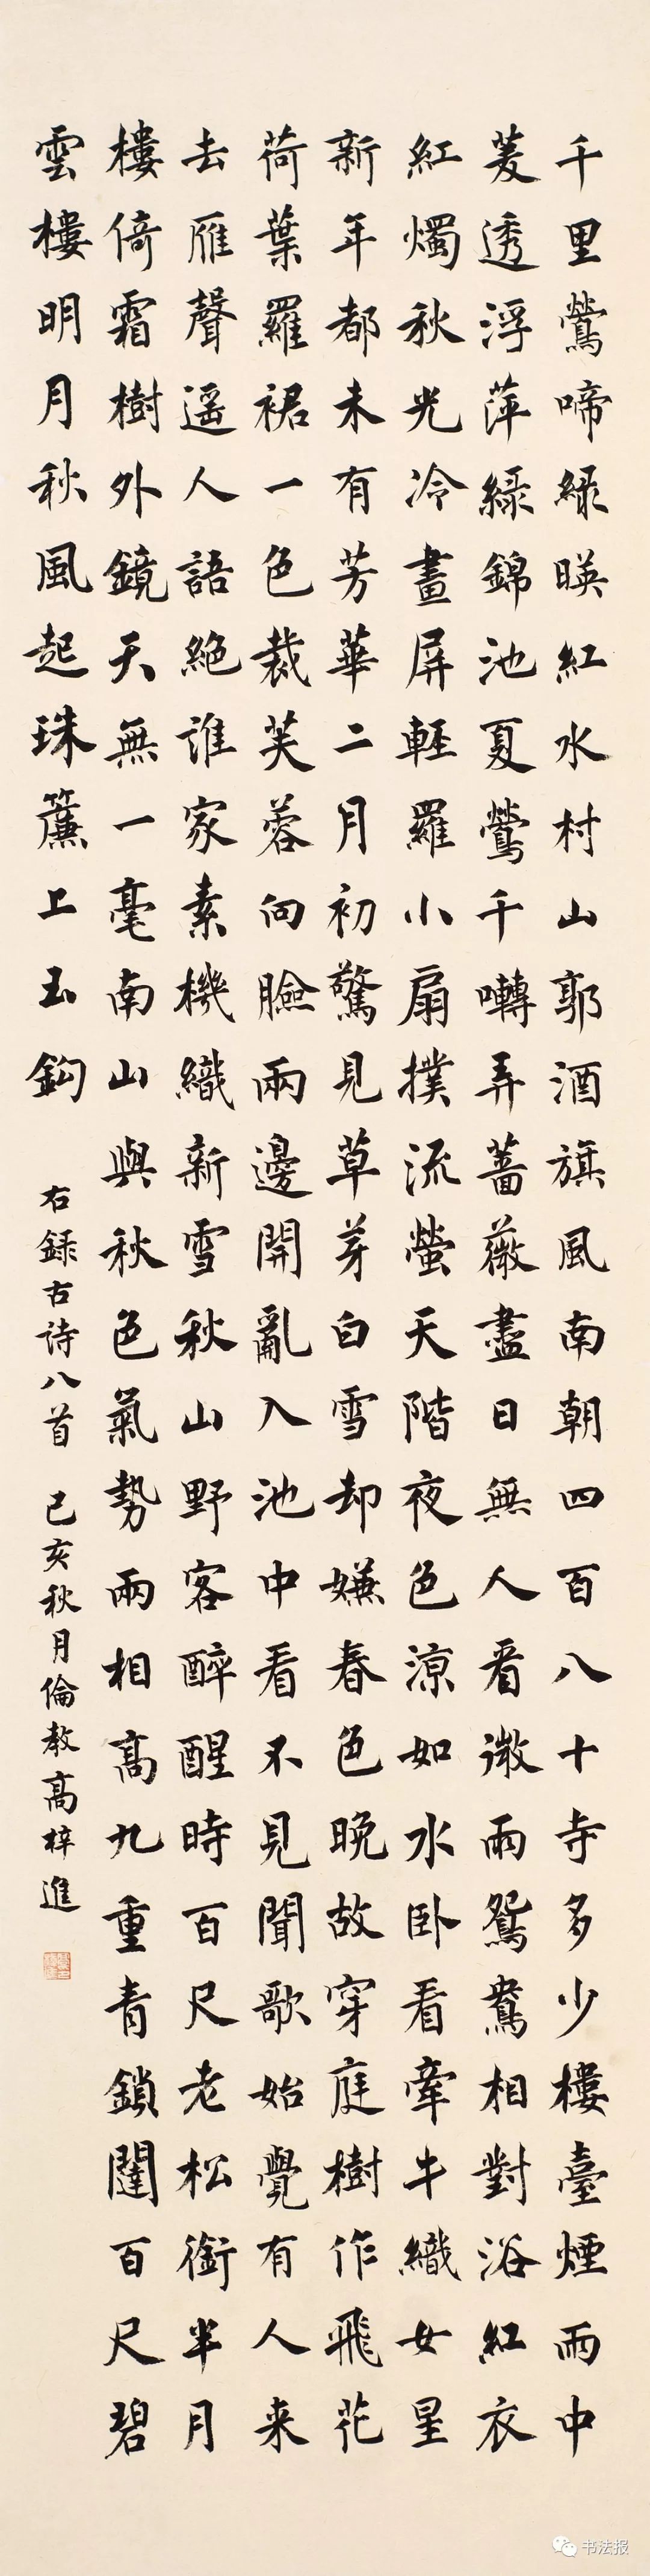 千里鶯啼綠暎紅水村山郭酒旗風南朝四百八十寺多少樓臺煙雨中
菱透浮萍綠錦池夏鶯千囀弄薔薇盡日無人看微雨鴛鴦相對浴紅衣
紅燭秋光冷畫屏輕羅小扇撲流螢天階夜色涼如水卧看牽牛織女星
新年都未有芳華二月初驚見草芽白雪却嫌春色晚故穿庭樹作飛花
荷葉羅裙一色裁芙蓉向臉兩邊開亂入池中看不見聞歌始覺有人来
去雁聲遥人語絶誰家素機織新雪秋山野客醉醒時百尺老松銜半月
樓倚霜樹外鏡天無一毫南山與秋色氣勢兩相高九重青鎖闥百尺碧
雲樓明月秋風起珠簾上玉鈎
右録古詩八首 己亥秋月倫教高梓進
书法报